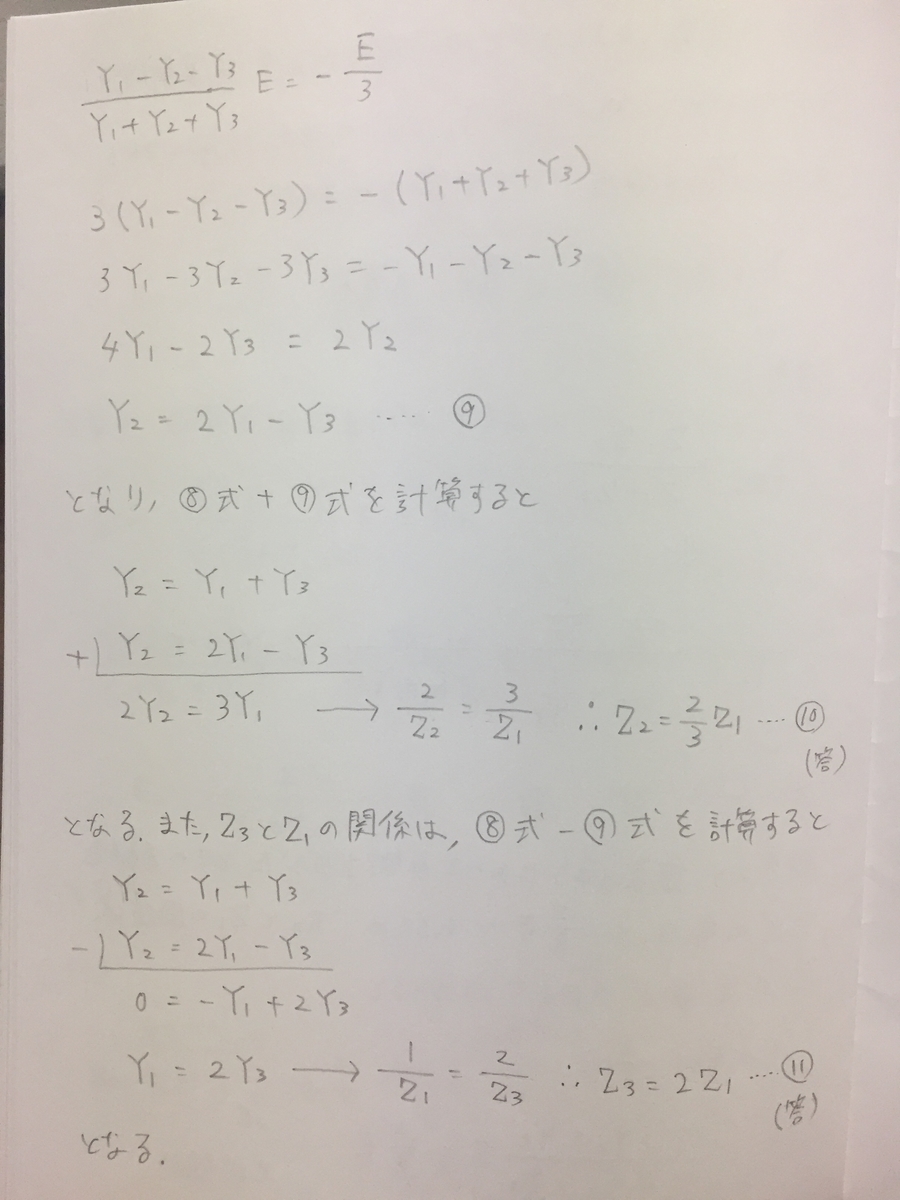 (Y₁ - Y₂ - Y₃)/(Y₁ + Y₂ + Y₃) E = - E/3
3(Y₁ - Y₂ - Y₃) = - (Y₁ + Y₂ + Y₃)
3Y₁ - 3Y₂ - 3Y₃ = - Y₁ - Y₂ - Y₃
4Y₁ - 2Y₃ = 2Y₂
Y₂ = 2Y₁ - Y₃ ····· ⑨
となり, ⑧式 + ⑨式を計算すると
Y₂ = Y₁ + Y₃
+) Y₂ = 2Y₁ - Y₃
2Y₂ = 3Y₁ → 2/Z₂ = 3/Z₁ ∴ Z₂ = 2/3 Z₁ ···· ⑩
(答)
となる. また, Z₃とZ₁の関係は, ⑧式 - ⑨式を計算すると
Y₂ = Y₁ + Y₃
-) Y₂ = 2Y₁ - Y₃
0 = - Y₁ + 2Y₃
Y₁ = 2Y₃ → 1/Z₁ = 2/Z₃ ∴ Z₃ = 2Z₁ ····· ⑪
(答)
となる.